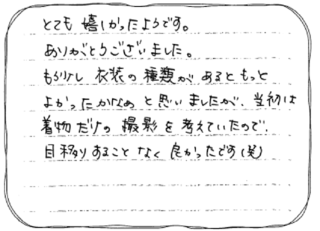 とても嬉しかったようです。
ありがとうございました。
もう少し衣装の種類があるともっと
よかったかなぁと思いましたが、当初は
着物だけの撮影を考えていたので、
目移りすることなく良かったです(笑)